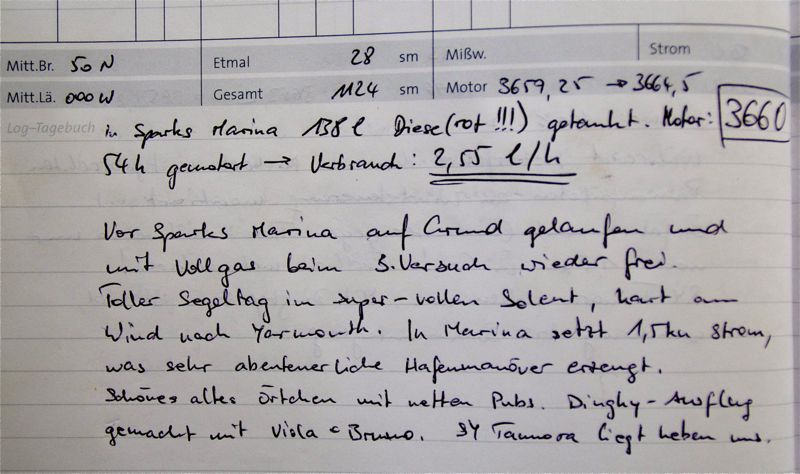 Mitt.Br. 50 N Etmal 28 sm Mißw. Strom
Mitt.Lä. 000 W Gesamt 1124 sm Motor 3659,25 → 3664,5
Log-Tagebuch in Sparks Marina 138 l Diesel (rot !!!) getankt. Motor: 3660
54 h gemotort → Verbrauch: 2,55 l/h
Vor Sparks Marina auf Grund gelaufen und
mit Vollgas beim 3. Versuch wieder frei.
Toller Segeltag im super-vollen Solent, hart am
Wind nach Yarmouth. In Marina setzt 1,5 kn Strom,
was sehr abenteuerliche Hafenmanöver erzeugt.
Schönes altes Örtchen mit netten Pubs. Dinghy-Ausflug
gemacht mit Viola + Bruno. SY liegt neben uns.